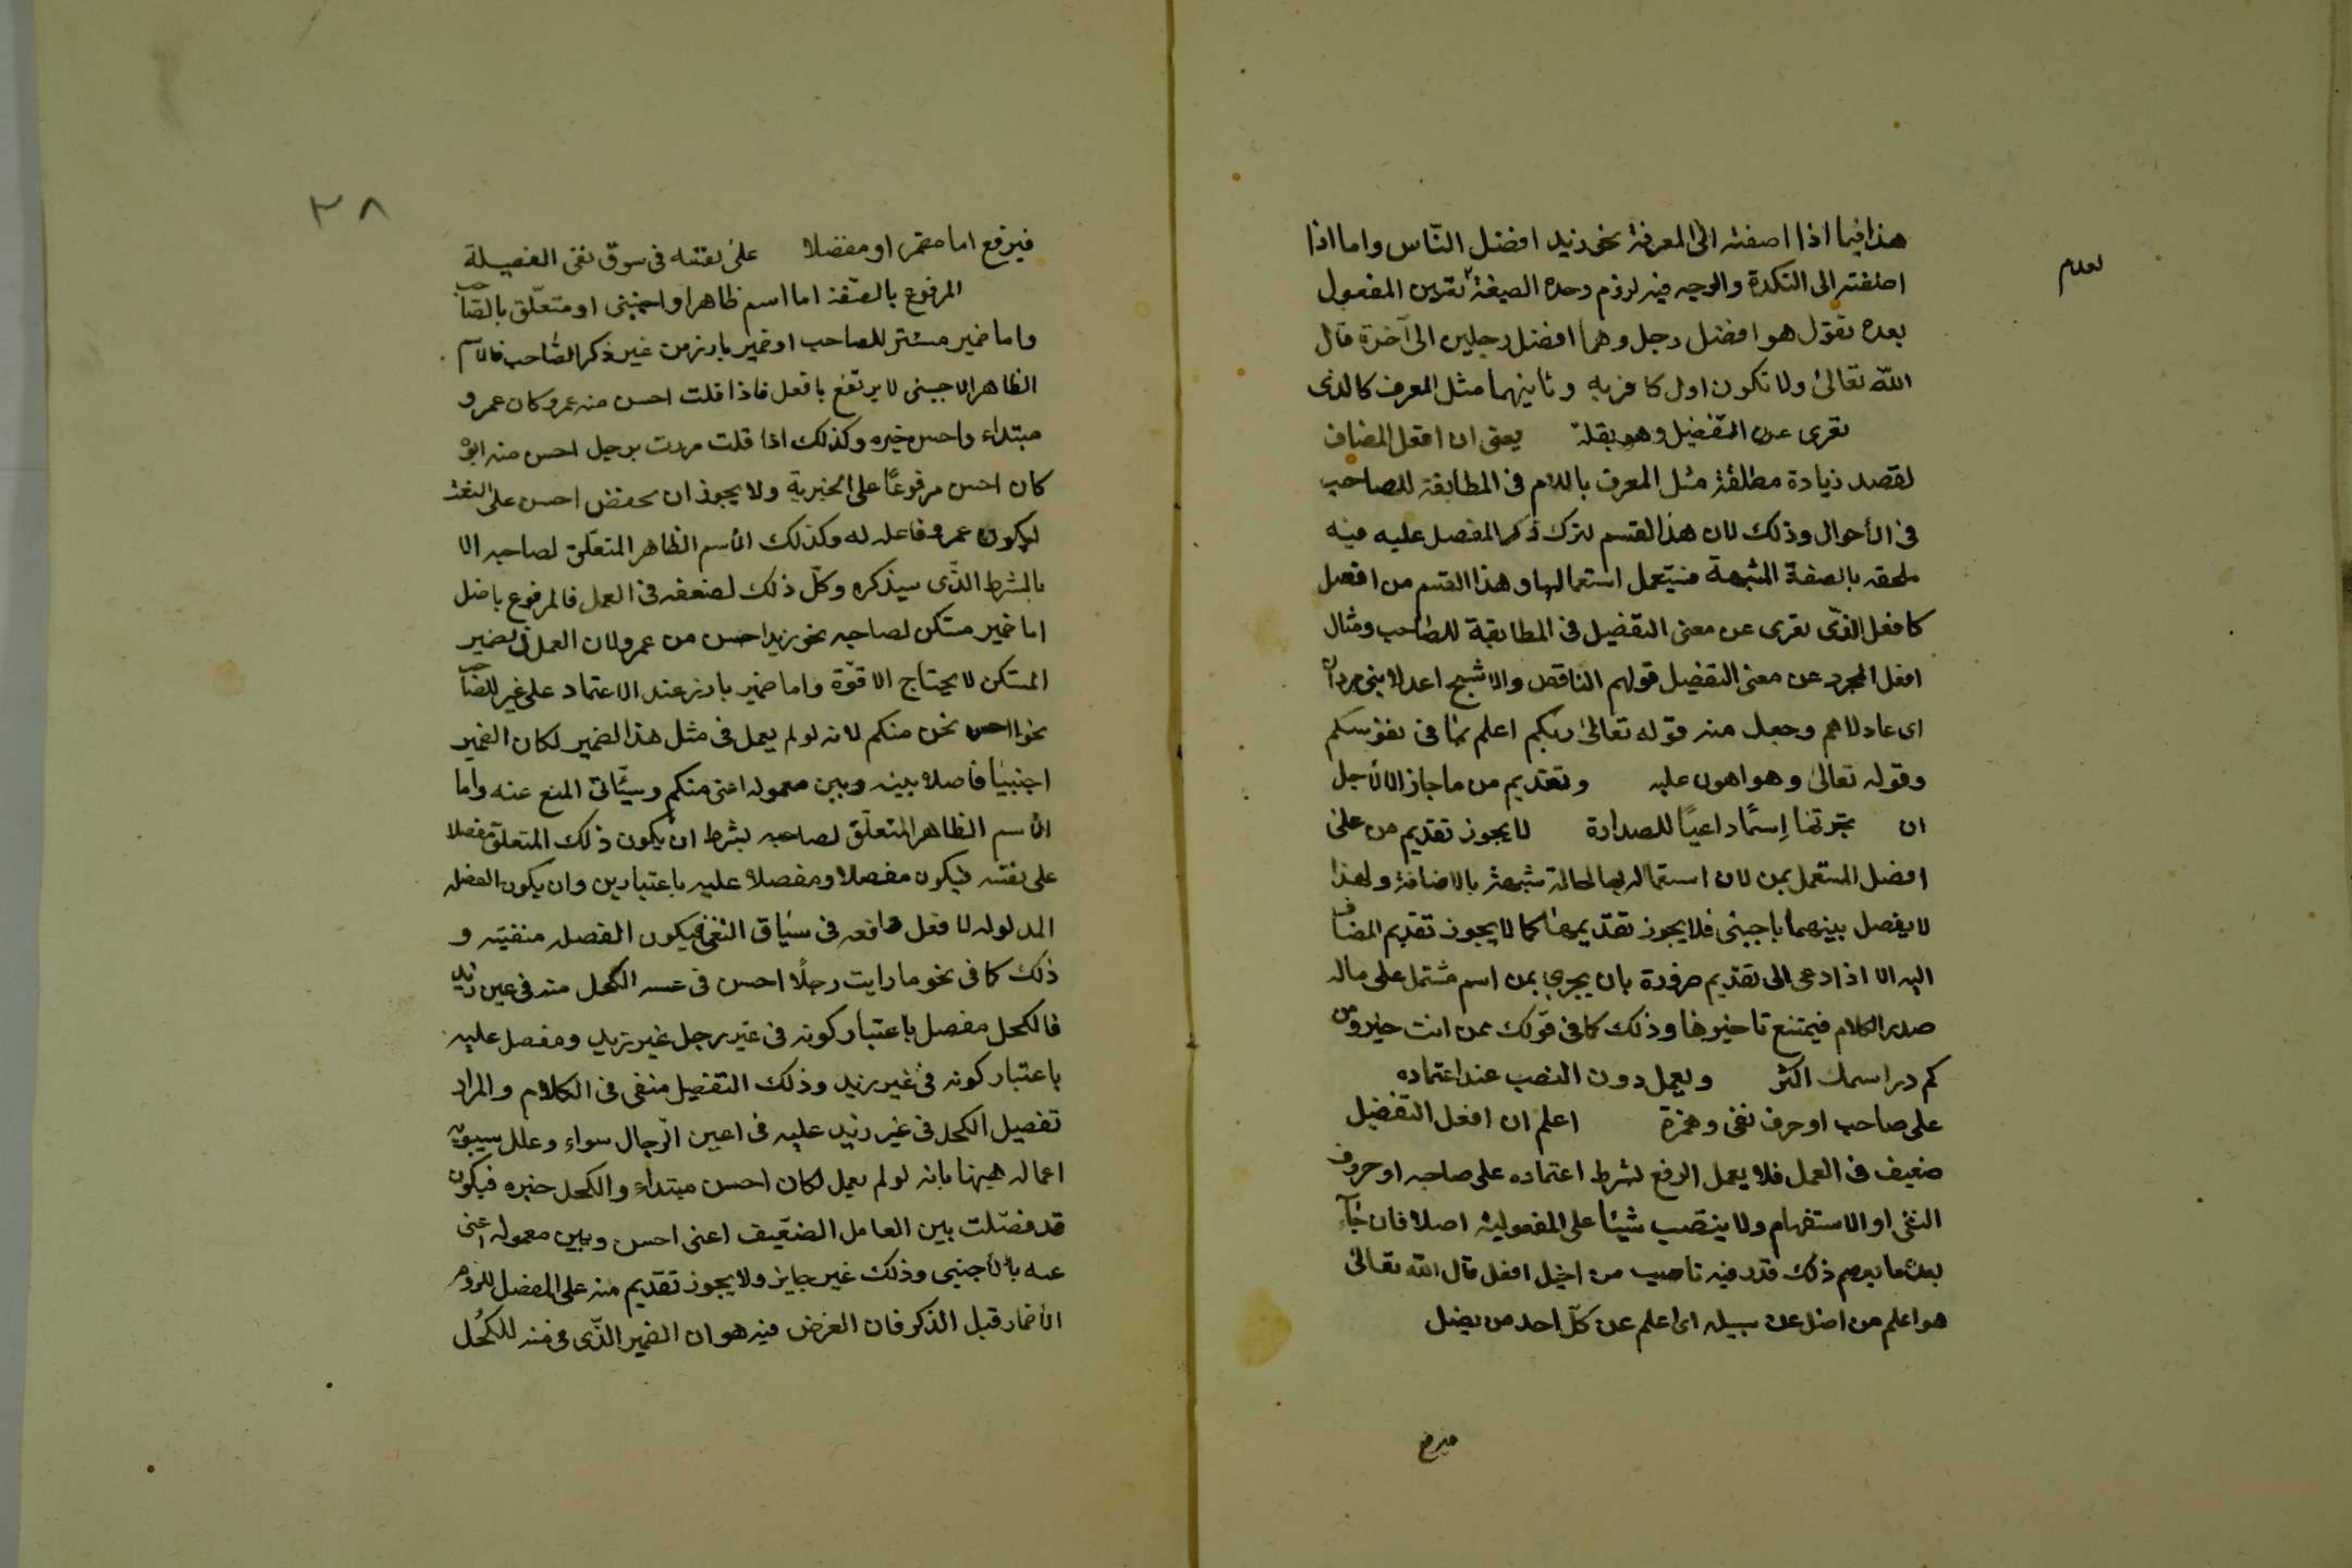 هذا فيما اذا اضفته الى المعرفة نحو زيد افضل النّاس واما اذا
اضفته الى النكرة والوجه فيه لزوم وحدة الصيغة المفعول
لعدم
بعده تقول هو افضل رجل وهما افضل رجلين الى آخره قال
اللّه تعالى ولا تكون اول كافر به وثانيهما مثل المعرف كالذى
تعرى عن التفضيل وهو بقلة يعنى ان افعل المضاف
لقصد زيادة مطلقة مثل المعرف باللام فى المطابقة للصاحب
فى الأحوال وذلك لان هذا القسم لترك ذكر المفضل عليه فيه
ملحقه بالصفة المشبهة فيستعمل استعمالها وهذا القسم من افعل
كافعل الذّى تعرى عن معنى التفضيل فى المطابقة للصاحب ومثال
افعل المجرد عن معنى التفضيل قولهم الناقص والاشبح اعدلا بنى مروان
اى عادلاهم وجعل منه قوله تعالى ربكم اعلم بما فى نفوسكم
وقوله تعالى وهو اهون عليه وتقديم من ما جاز الا لأجل
ان بجرتها اسمًا داعيًا للصدارة لا يجوز تقديم من على
افضل المستعمل بمن لان استعماله بها لحالة شبهة بالاضافة ولهذا
لا يفصل بينهما باجنبى فلا يجوز تقديمها كما لا يجوز تقديم المضاف
اليه الا اذا دعى الى تقديم ضرورة بان يجرى بمن اسم مشتمل على ماله
صدر الكلام فيمتنع تاخيرها وذلك كما فى قولك ممن انت خير ومن
كم دراسمك اكثر ويعمل دون النصب عند اعتماده
على صاحب او حرف نفى وهمزة اعلم ان افعل التفضيل
ضعيف فى العمل فلا يعمل الرفع لشرط اعتماده على صاحبه او حروف
النفى او الاستفهام ولا ينتصب شيئا على المفعولية اصلا فان جآء
بعده ما يوهم ذلك قدر فيه ناصب من اجل افعل قال اللّه تعالى
هو اعلم من اضل عن سبيله اى اعلم عن كلّ احد من يضل
فيرفع
٣٨
فيرفع اما مضمر او مفضلا على نفسه فى سوق نفى الفضيلة
المرفوع بالصفة اما اسم ظاهر او اجنبى او متعلّق بالصّاحب
واما ضمير مستتر للصاحب او ضمير بارز من غير ذكر الصّاحب فالاسم
الظاهر الاجنبى لا يرتفع بافعل فاذا قلت احسن منه عمرو كان عمرو
مبتداء واحسن خبره وكذلك اذا قلت مررت برجل احسن منه ابوه
كان احسن مرفوعًا على الخبرية ولا يجوز ان يخفض احسن على النعت
ليكون عمرو فاعله له وكذلك الأسم الظاهر المتعلّق لصاحبه الا
بالشرط الذّى سيذكره وكلّ ذلك لضعفه فى العمل فالمرفوع بافعل
اما ضمير مستكن لصاحبه نحو زيد احسن من عمرو لان العمل فى ضمير
المستكن لا يحتاج الا قوّة واما ضمير بارز عند الاعتماد على غير للصاحب
نحو ااحسن نحن منكم لانه لو لم يعمل فى مثل هذا الضمير لكان الضمير
اجنبيًا فاصلا بينه وبين معموله اعنى منكم وسيّأتى المنع عنه واما
الأسم الظاهر المتعلّق لصاحبه بشرط ان يكون ذلك المتعلّق مفضلا
على نفسه فيكون مفضلا ومفضلا عليه باعتبارين وان يكون الفضل
المدلوله لا فعل واقعه فى سياق النفى فيكون الفضل منفيته و
ذلك كما فى نحو ما رايت رجلًا احسن فى عينه الكحل منه فى عين زيد
فالكحل مفضل باعتبار كونه فى غير رجل غير زيد ومفضل عليه
باعتبار كونه فى غير زيد وذلك التفضيل منفى فى الكلام والمراد
تفضيل الكحل فى غير زيد عليه فى اعين الرّجال سواء وعلل سيبويه
اعماله هيهنا بانه لو لم يعمل لكان احسن مبتداء والكحل خبره فيكون
قد فصّلت بين العامل الضعيف اعنى احسن وبين معموله اعنى
عنه بالأجنبى وذلك غير جايز ولا يجوز تقديم منه على المفضل للزوم
الأضمار قبل الذكر فان الغرض فيه هو ان الضمير الذّى فى منه للكُحل